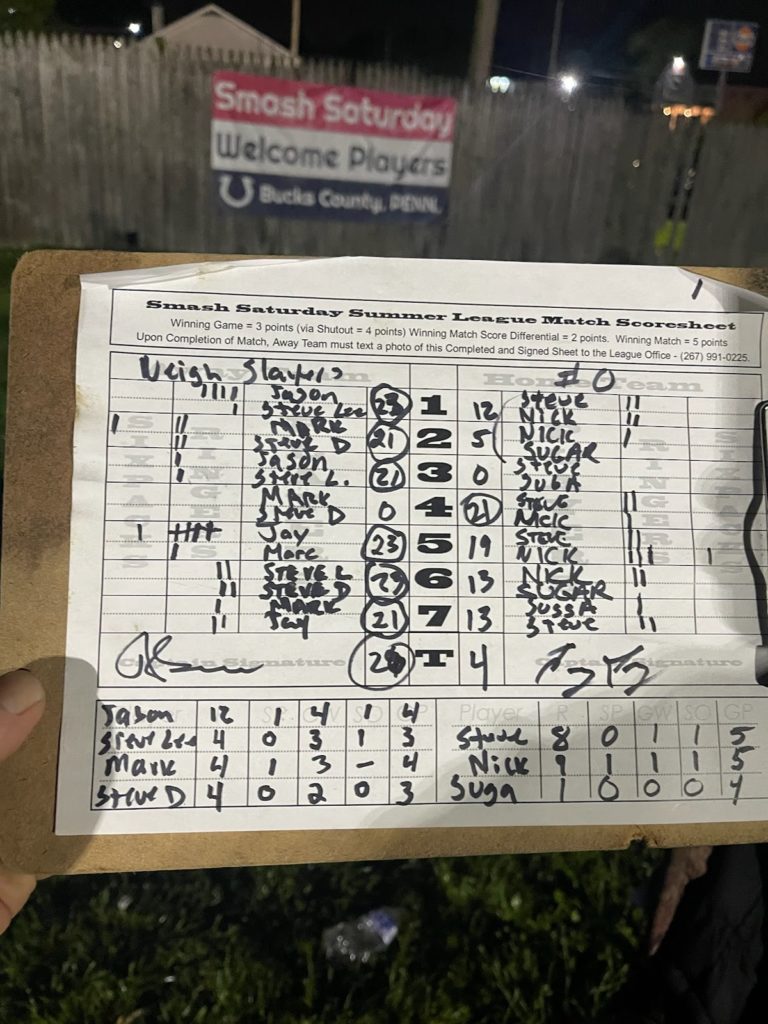 Smash Saturday
Welcome Players
Bucks County, PENN.
1
Smash Saturday Summer League Match Scoresheet
Winning Game = 3 points (via Shutout = 4 points) Winning Match Score Differential = 2 points. Winning Match = 5 points
Upon Completion of Match, Away Team must text a photo of this Completed and Signed Sheet to the League Office - (267) 991-0225.
Neigh Slayers Home Team
Jason 1 12 Steve
Steve Lee NICK
MARK 21 2 5 NICK
Steve D SUGAR
Jason 21 3 0 Steve
Steve L. SUGA
MARK 0 4 21 Steve
Steve D Nick
Jay 23 5 19 Steve
Marc NICK
STEVE L 6 13 NICK
STEVE D SUGAR
MARK 21 7 13 SUGGA
Jay Steve
Captain Signature T 4 Captain Signature
Player R SP GW SO GP
Jason 12 1 4 1 4
Steve Lee 4 0 3 1 3 Steve 8 0 1 1 5
Mark 4 1 3 - 4 Nick 9 1 1 1 5
Steve D 4 0 2 0 3 Suga 1 0 0 0 4